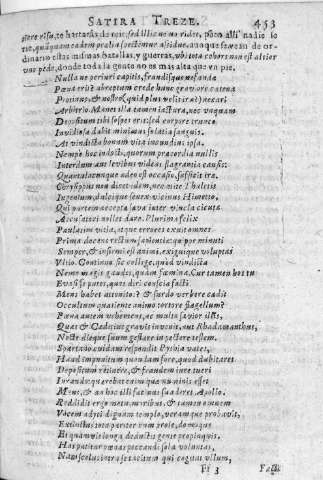 SATIRA TREZE. 453
risu, te hartaràs de reir: sed illic nemo ridet, pero alli nadie se
rie, quãquam eadem prælia spectemus assidue, aunque sean de or-
dinario estas mismas batallas, y guerras, ubi tota cohors non est altior
uno pede, donde toda la gente no es mas alta que un pie.
Nullane periuri capitis, fraudisque nefandæ
Pœna erit? abreptum crede hunc graviore catena
Protinus, & nostro (quid plus velit ira?) necari
Arbitrio. Manet illa tamen iactura, nec unquam
Depositum tibi sospes erit: sed corpore trunco
Invidiosa dabit minimus solatia sanguis.
At vindicta bonum vita iucundius ipsa.
Nempe hoc indocti, quorum præcordia nullis
Interdum aut levibus videas flagrantia causis:
Quantulacunque adeo est occasio, sufficit iræ.
Chrysippus non dicet idem, nec mite Thaletis
Ingenium, dulcique senex vicinus Himetto,
Qui partem acceptæ sæva inter vincla cicutæ
Accusatori nollet dare. Plurima felix
Paulatim vitia, atque errores exuit omnes
Prima docens rectum sapientia: quippe minuti
Semper, & infirmi est animi, exiguique voluptas
Ultio. Continuo sic collige, quod vindicta
Nemo magis gaudet, quàm fœmina. Cur tamen hos tu
Evasisse putes, quos diri conscia facti
Mens habet attonitos? & surdo verbere cædit
Occultum quatiente animo tortore flagellum?
Pœna autem vehemens, ac multo sævior illis,
Quas & Cæditius gravis invenit, aut Rhadamanthus,
Nocte dieque suum gestare in pectore testem.
Spartano cuidam respondit Pythia vates,
Haud impunitum quondam fore, quod dubitaret
Depositum retinere, & fraudem iure tueri
Iurando: quærebat enim quæ numinis esset
Mens, & an hoc illi facinus suaderet Apollo.
Reddidit ergo metu, non moribus: & tamen omnem
Vocem adyti dignam templo, veramque probavit,
Extinctus tota pariter cum prole, domoque
Et quamvis longa deductis gente propinquis.
Has patitur pœnas peccandi sola voluntas,
Nam scelus intra se tacitum qui cogitat ullum,
Ff 3 Facti